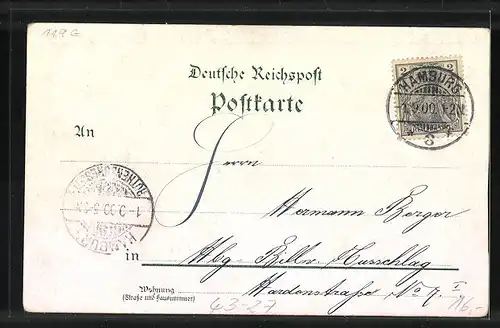 119 G
Deutsche Reichspost
Postkarte
2 2
HAMBURG
1.9.00.
8
An
Herrn
Hermann Berger
in Hbg. Billw. Ausschlag
Wohnung
(Straße und Hausnummer)
Hardenstraße No 7. I
43-27
16,-